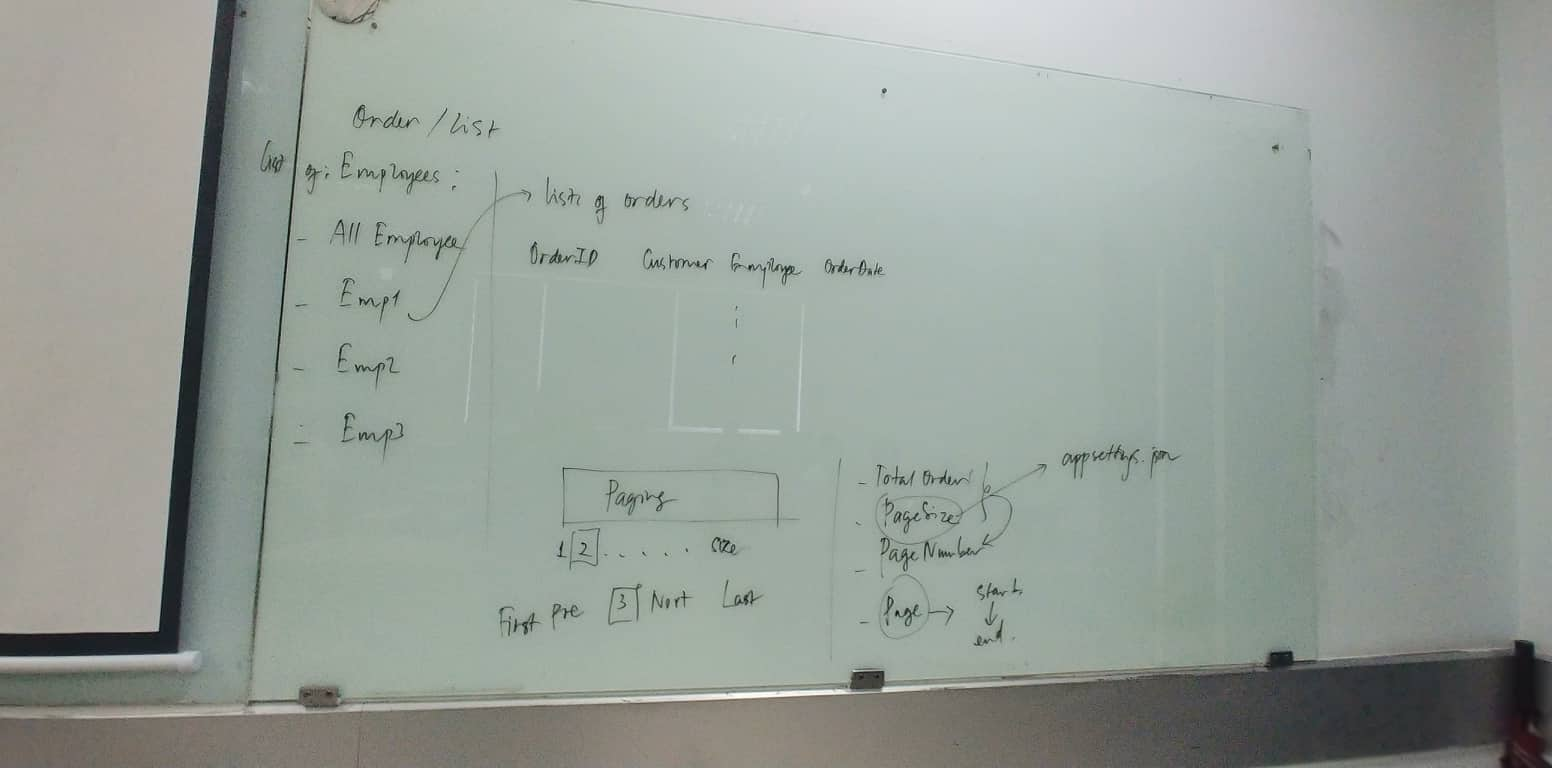 Order / List
List of: Employees:
- All Employee
- Emp1
- Emp2
- Emp3
List of orders
OrderID Customer Employee OrderDate
Paging
1 2 . . . . . Size
First Pre 3 Next Last
- Total Order
- PageSize
appsettings.json
- PageNumber
- Page → start
↓
end.